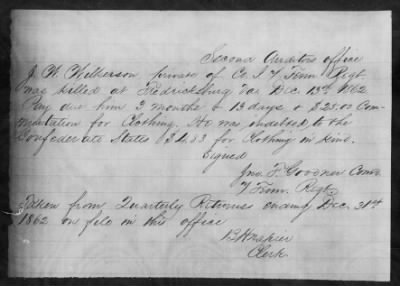 Second Auditors office
J. W. Wilkerson private of Co. I 7 Tenn Regt
was killed at Fredricksburg Va. Dec. 13th 1862
Pay due him 3 months & 13 days & $25.00 Com-
mutation for Clothing. He was indebted to the
Confederate States for Clothing in kind.
Signed
Jno. F. Goodner
7 Tenn. Regt
Taken from Quarterly Returns ending Dec. 31st
1862 on file in this office
Clerk.